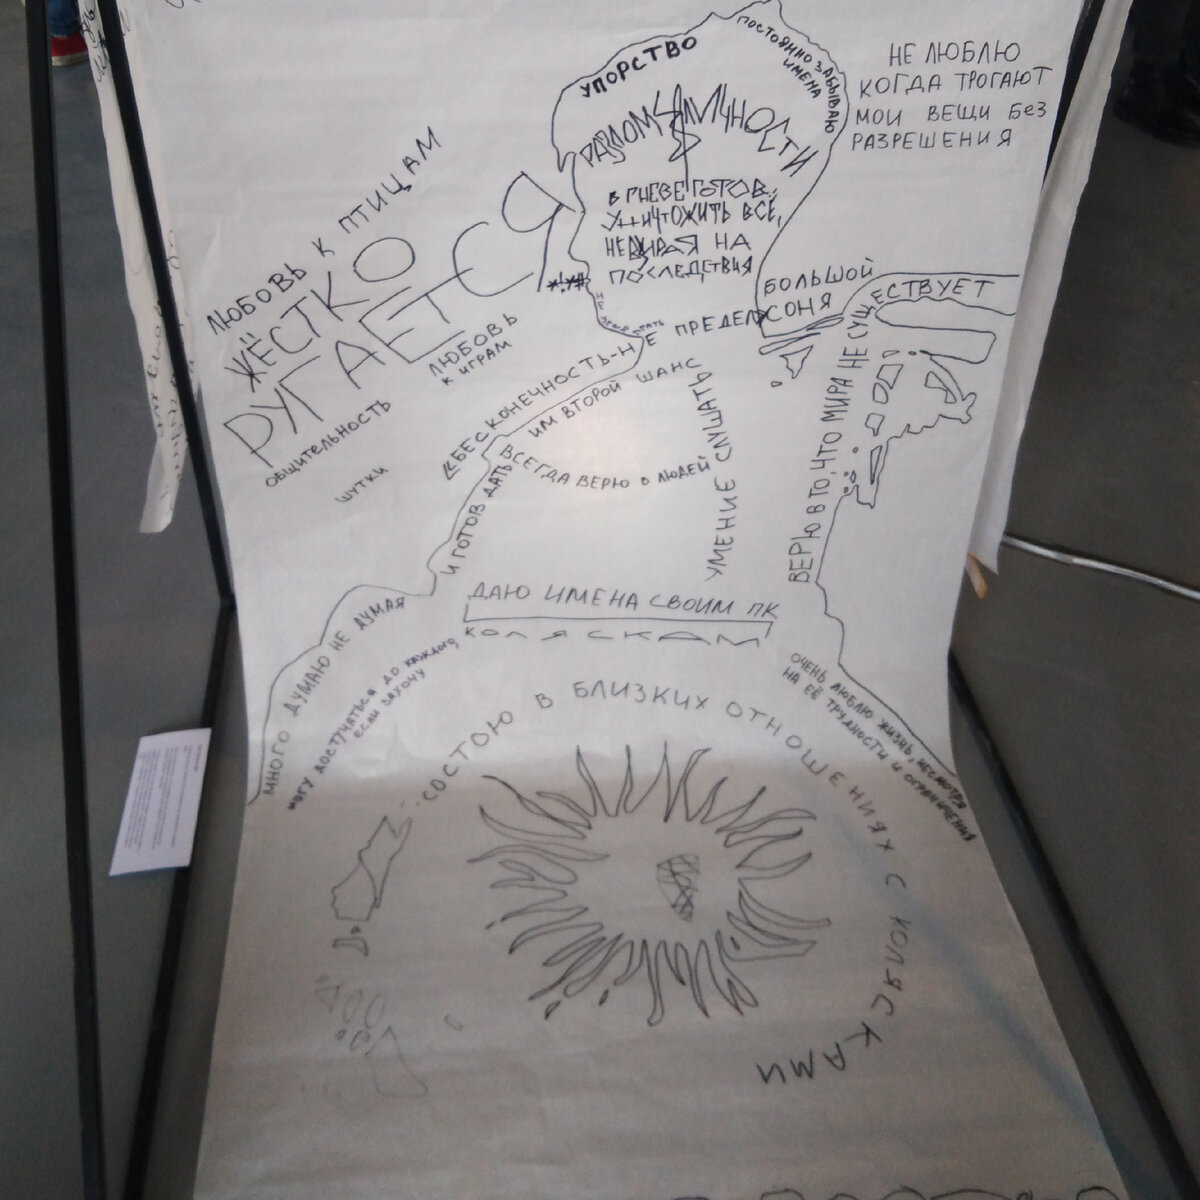 УПОРСТВО
ПОСТОЯННО ЗАБЫВАЮ
ИМЕНА
НЕ ЛЮБЛЮ
КОГДА ТРОГАЮТ
МОИ ВЕЩИ БЕЗ
РАЗРЕШЕНИЯ
РАЗЛОМ ЛИЧНОСТИ
В ГНЕВЕ ГОТОВ
УНИЧТОЖИТЬ ВСЁ,
НЕВЗИРАЯ НА
ПОСЛЕДСТВИЯ
ЛЮБОВЬ К ПТИЦАМ
ЖЁСТКО
РУГАЕТСЯ
*!*#
ЛЮБОВЬ
К ИГРАМ
ОБЩИТЕЛЬНОСТЬ
ШУТКИ
БОЛЬШОЙ
СОНЯ
«БЕСКОНЕЧНОСТЬ-НЕ ПРЕДЕЛ»
И ГОТОВ ДАТЬ
ИМ ВТОРОЙ ШАНС
ВСЕГДА ВЕРЮ В ЛЮДЕЙ
УМЕНИЕ СЛУШАТЬ
ВЕРЮ В ТО, ЧТО МИРА НЕ СУЩЕСТВУЕТ
ДАЮ ИМЕНА СВОИМ ПК
КОЛЯСКАМ
МНОГО ДУМАЮ НЕ ДУМАЯ
МОГУ ДОСТУЧАТЬСЯ ДО КАЖДОГО,
ЕСЛИ ЗАХОЧУ
ОЧЕНЬ ЛЮБЛЮ ЖИЗНЬ, НЕСМОТРЯ
НА ЕЁ ТРУДНОСТИ И ОГРАНИЧЕНИЯ
СОСТОЮ В БЛИЗКИХ ОТНОШЕНИЯХ С ИОИБСЬКАМИ